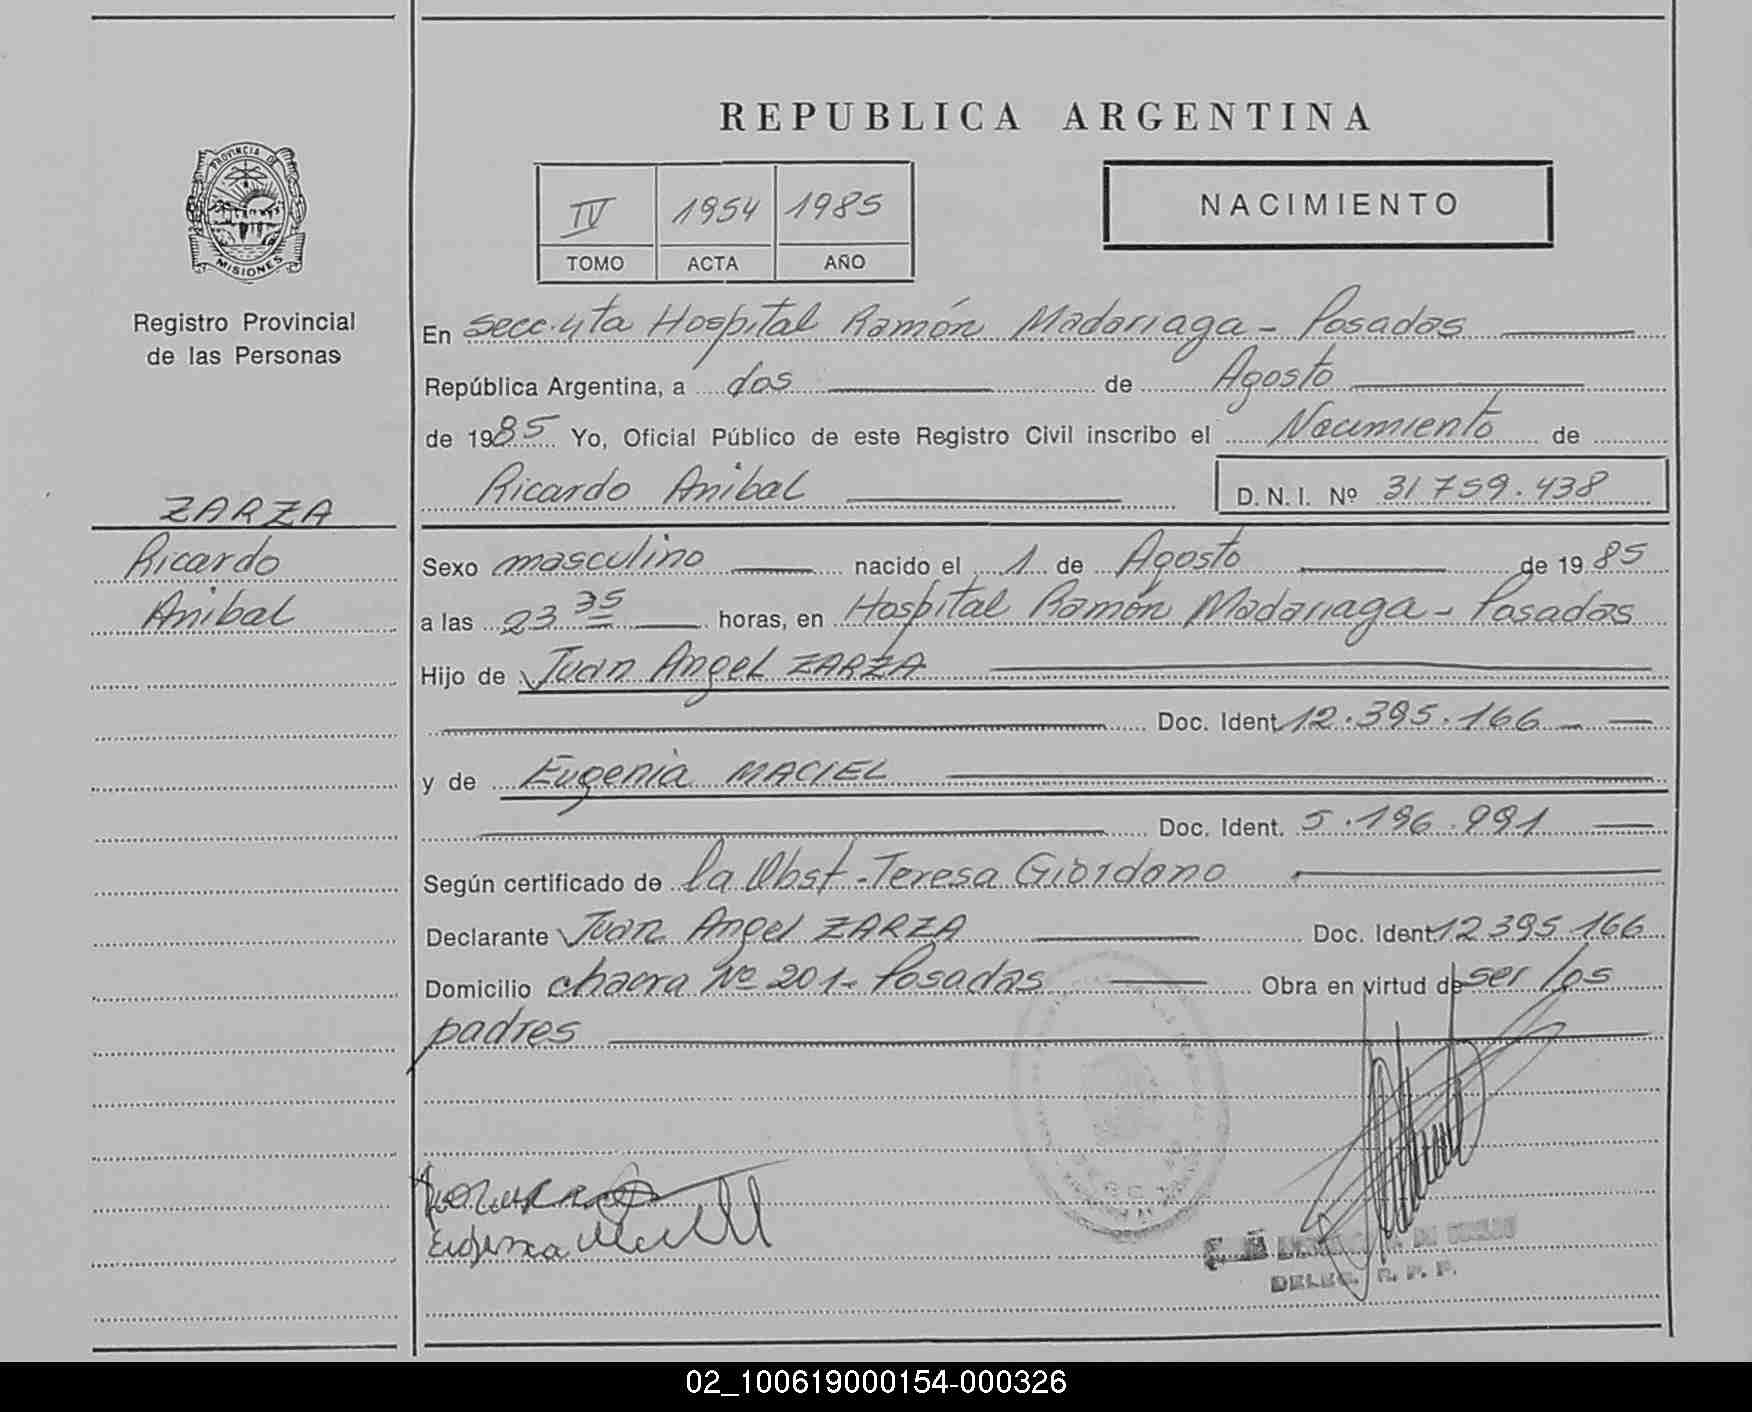 REPUBLICA ARGENTINA
PROVINCIA DE
MISIONES
Registro Provincial
de las Personas
IV 1954 1985
TOMO ACTA AÑO
NACIMIENTO
En Secc. 4ta Hospital Ramón Madariaga - Posadas
República Argentina, a dos de Agosto
de 1985 Yo, Oficial Público de este Registro Civil inscribo el Nacimiento de
Ricardo Anibal D.N.I. Nº 31759.438
ZARZA
Ricardo
Anibal
Sexo masculino nacido el 1 de Agosto de 1985
a las 23 35 horas, en Hospital Ramón Madariaga - Posadas
Hijo de Juan Angel ZARZA
Doc. Ident. 12.395.166
y de Eugenia MACIEL
Doc. Ident. 5.196.991
Según certificado de la Obst. Teresa Giordano
Declarante Juan Angel ZARZA Doc. Ident. 12395166
Domicilio chacra Nº 201- Posadas Obra en virtud de ser los
padres
DELEG. R. P. P.
02_100619000154-000326